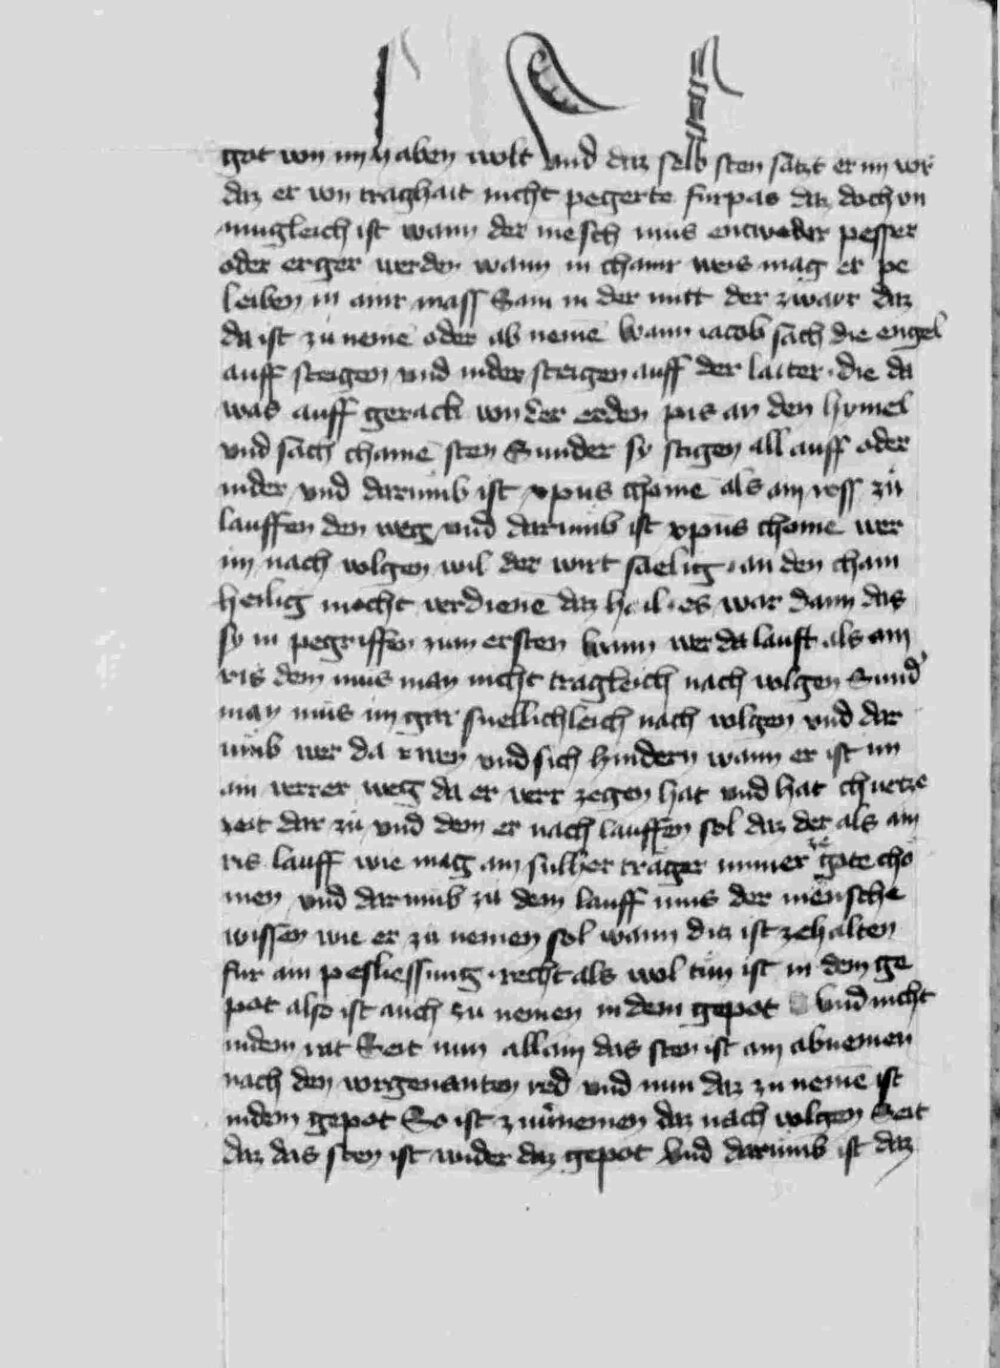 got von im haben wolt vnd daz selb sten sätzt er im vor
daz er von traghait nicht pegerte furpas daz doch vn
mugleich ist wann der mēsch mus entweder pesser
oder erger werden wann in chainr weis mag er pe
leiben in ainr mass Sam in der mitt der zwair daz
da ist zu nemē oder ab nemē wann iacob sach die engel
auff steigen vnd nider steigen auff der laiter · die da
was auff gerackt von der erden pis an den hymel
vnd sach chainē sten Sunder sy stigen all auff oder
nider vnd darumb ist xpūs chomē als ain ross zů
lauffen den weg vnd darumb ist xpūs chomē wer
im nach volgen wil der wirt saelig · an den chain
heilig mocht verdienē daz hail · es war dann das
sy in pegriffen zum ersten wann wer da lauft als ain
ris dem mus man nicht tragleich nach volgen Sund'
man mus im gar snellichleich nach volgen vnd dar
umb wer da rwen vnd sich hindern wann er ist im
ain verrer weg da er verr zegen hat vnd hat churtze
zeit dar zu vnd dem er nach lauffen sol daz der als ain
ris lauff wie mag ain sulher träger immer ze gote cho
men vnd darumb zu dem lauff mus der mēnsche
wissen wie er zu nemen sol wann ditz ist zehalten
fur ain pesliessung · recht als wol tůn ist in dem ge
pot also ist auch zu nemen in dem gepot vnd nicht
indem rat Seit nun allain das sten ist ain abnemen
nach den vorgenanten red vnd nun daz zu nemē ist
indem gepot So ist zunemen daz nach volgen Seit
daz das sten ist wider daz gepot vnd darumb ist daz